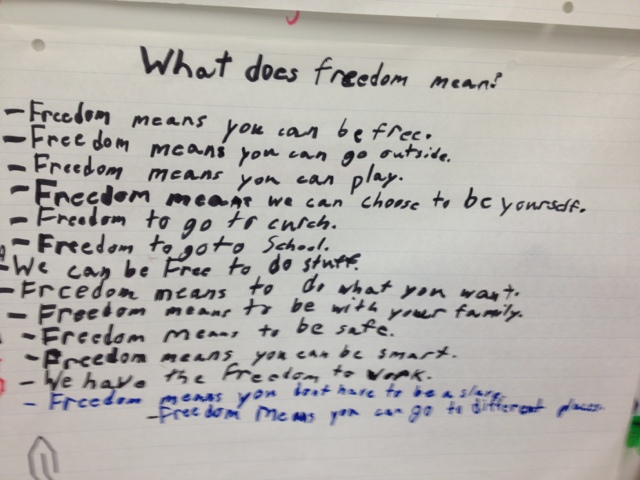 What does freedom mean?
- Freedom means you can be free.
- Freedom means you can go outside.
- Freedom means you can play.
- Freedom means we can choose to be yourself.
- Freedom to go to curch.
- Freedom to go to School.
- We can be Free to do stuff.
- Freedom means to do what you want.
- Freedom means to be with your family.
- Freedom means to be safe.
- Freedom means you can be smart.
- We have the Freedom to work.
- Freedom means you dont have to be a slave.
- Freedom Means you can go to different places.